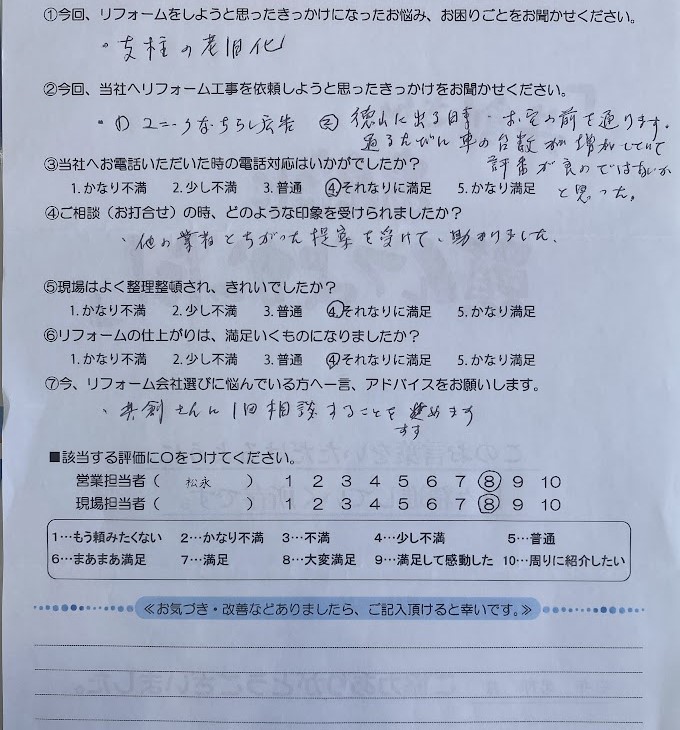 ①今回、リフォームをしようと思ったきっかけになったお悩み、お困りごとをお聞かせください。
・支柱の老旧化
②今回、当社へリフォーム工事を依頼しようと思ったきっかけをお聞かせください。
・① ユニークなちらし広告 ② 徳山に出る時・お宅の前を通ります。
通るたびに車の台数が増加していて
評番が良のではないか
と思った。
③当社へお電話いただいた時の電話対応はいかがでしたか？
1.かなり不満 2.少し不満 3.普通 4.それなりに満足 5.かなり満足
④ご相談（お打合せ）の時、どのような印象を受けられましたか？
・他の業者とちがった提案を受けて、助かりました、
⑤現場はよく整理整頓され、きれいでしたか？
1.かなり不満 2.少し不満 3.普通 4.それなりに満足 5.かなり満足
⑥リフォームの仕上がりは、満足いくものになりましたか？
1.かなり不満 2.少し不満 3.普通 4.それなりに満足 5.かなり満足
⑦今、リフォーム会社選びに悩んでいる方へ一言、アドバイスをお願いします。
・共創さんに1回相談することを進めます
すす
■該当する評価に○をつけてください。
営業担当者（ 松永 ） 1 2 3 4 5 6 7 8 9 10
現場担当者（ ） 1 2 3 4 5 6 7 8 9 10
1…もう頼みたくない 2…かなり不満 3…不満 4…少し不満 5…普通
6…まあまあ満足 7…満足 8…大変満足 9…満足して感動した 10…周りに紹介したい
≪お気づき・改善などありましたら、ご記入頂けると幸いです。≫